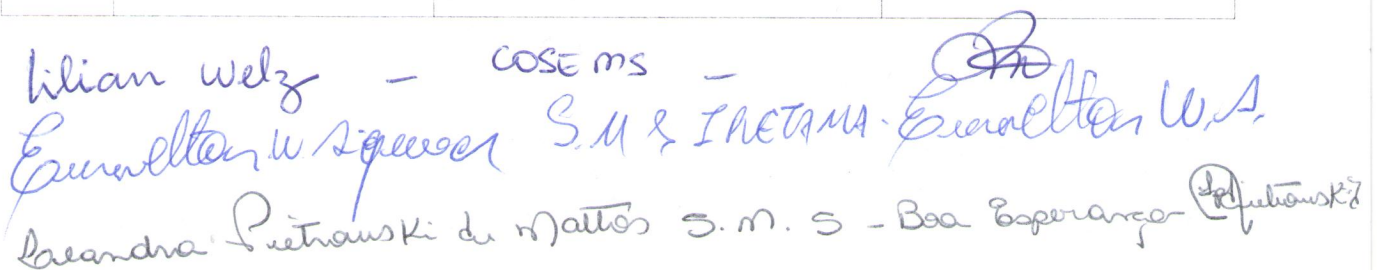 Lilian Welz - COSEMS -
Eurivelton W. Siqueira S.M.S IRETAMA. Eurivelton W.S.
Leandra Pietrauski de Mattos S.M.S - Boa Esperança Pietrauski